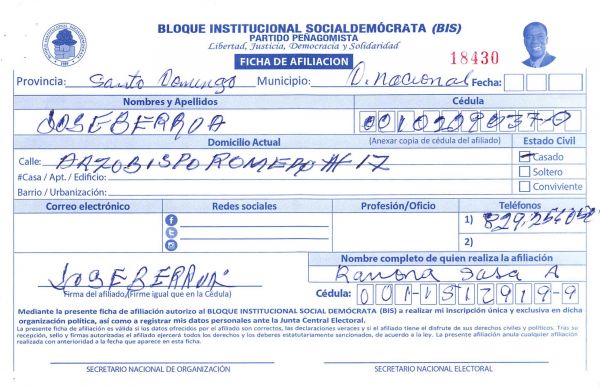 BLOQUE INSTITUCIONAL SOCIALDEMÓCRATA (BIS)
PARTIDO PEÑAGOMISTA
Libertad, Justicia, Democracia y Solidaridad
FICHA DE AFILIACION
18430
Provincia: Santo Domingo Municipio: D. Nacional Fecha:
Nombres y Apellidos Cédula
JOSE BERROA
Domicilio Actual (Anexar copia de cédula del afiliado) Estado Civil
Calle: ARZOBISPO ROMERO # 17
#Casa / Apt. / Edificio:
Barrio / Urbanización:
Casado
Soltero
Conviviente
Correo electrónico Redes sociales Profesión/Oficio Teléfonos
1)
2)
Nombre completo de quien realiza la afiliación
JOSE BERROA
Ramona A
Firma del afiliado/(Firme igual que en la Cédula)
Cédula: 001-1512919-9
Mediante la presente ficha de afiliación autorizo al BLOQUE INSTITUCIONAL SOCIAL DEMÓCRATA (BIS) a realizar mi inscripción única y exclusiva en dicha
organización política, así como a registrar mis datos personales ante la Junta Central Electoral.
La presente ficha de afiliación es válida si los datos ofrecidos por el afiliado son correctos, las declaraciones veraces y si el afiliado tiene el disfrute de sus derechos civiles y políticos. Tras su
recepción, sello y firmas autorizadas el afiliado ejercerá todos los derechos y los deberes estatutariamente sancionados, de acuerdo a la ley. La presente afiliación anula cualquier afiliación
realizada con anterioridad a la fecha que aparece en esta ficha.
SECRETARIO NACIONAL DE ORGANIZACIÓN SECRETARIO NACIONAL ELECTORAL